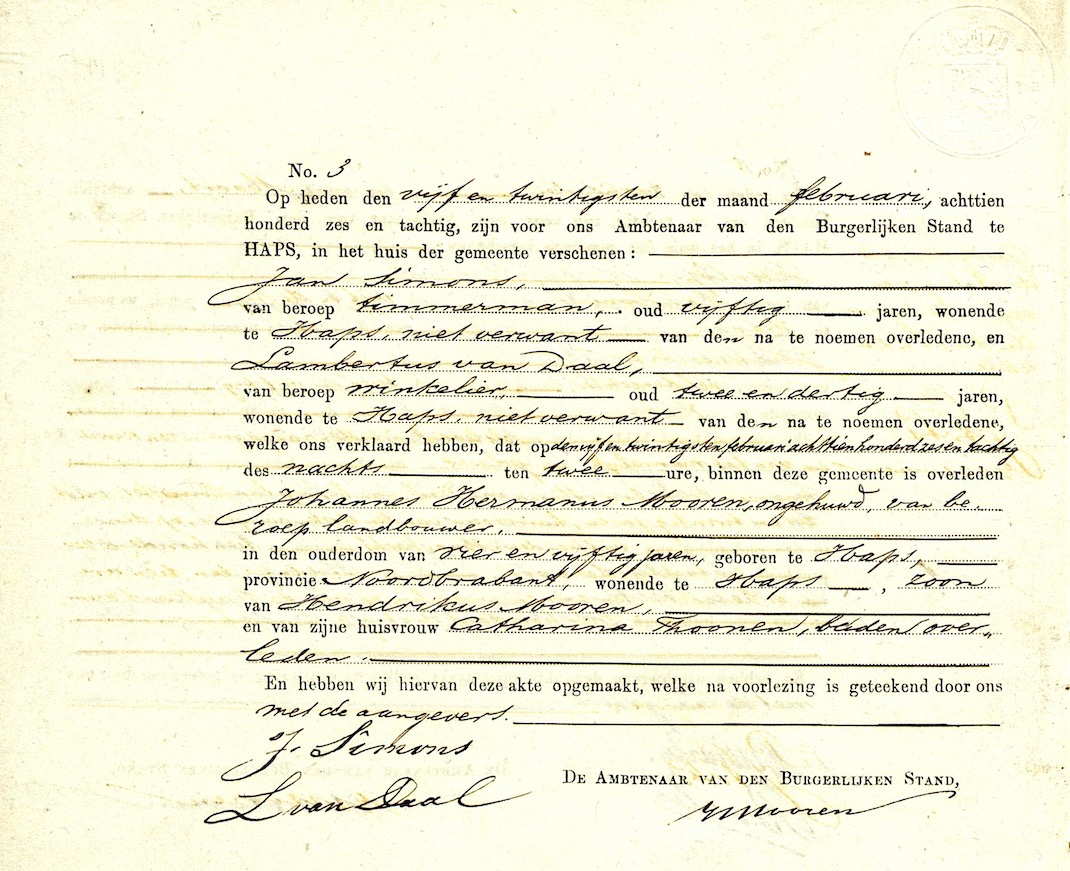 No. 3
Op heden den vijf en twintigsten der maand februari, achttien
honderd zes en tachtig, zijn voor ons Ambtenaar van den Burgerlijken Stand te
HAPS, in het huis der gemeente verschenen:
Jan Simons,
van beroep timmerman, oud vijftig jaren, wonende
te Haps, niet verwant van den na te noemen overledene, en
Lambertus van Daal,
van beroep winkelier, oud twee en dertig jaren,
wonende te Haps, niet verwant van den na te noemen overledene,
welke ons verklaard hebben, dat op den vijf en twintigsten februari achttienhonderd zes en tachtig
des nachts ten twee ure, binnen deze gemeente is overleden
Johannes Hermanus Mooren, ongehuwd, van be-
roep landbouwer,
in den ouderdom van vier en vijftig jaren, geboren te Haps,
provincie Noordbrabant, wonende te Haps, zoon
van Hendrikus Mooren,
en van zijne huisvrouw Catharina Thoonen, beiden over-
leden.
En hebben wij hiervan deze akte opgemaakt, welke na voorlezing is geteekend door ons
met de aangevers.
J. Simons
DE AMBTENAAR VAN DEN BURGERLIJKEN STAND,
L van Daal
Mooren